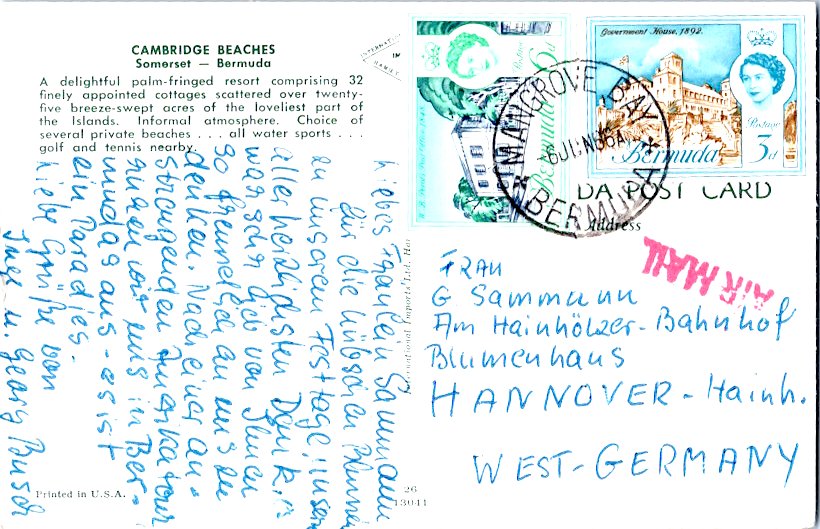 CAMBRIDGE BEACHES
Somerset — Bermuda
A delightful palm-fringed resort comprising 32
finely appointed cottages scattered over twenty-
five breeze-swept acres of the loveliest part of
the Islands. Informal atmosphere. Choice of
several private beaches . . . all water sports . . .
golf and tennis nearby.
Liebes Fräulein Sammann
für die hübschen Blumen
zu unserem Festtage, unsern
allerherzlichsten Dank.
war sehr lieb von Ihnen
so freundlich an uns zu
denken. Nach einer an-
strengenden Amerikatour
ruhen wir uns in Ber-
mudas aus - es ist
ein Paradies.
Liebe Grüße von
Inge u. Georg Busch
Printed in U.S.A.
26
13041
International Imports Ltd.
Bermuda
6d
MANGROVE BAY
6 JUN 66
BERMUDA
Government House, 1892.
Postage
Bermuda
3d
DA POST CARD
Address
AIR MAIL
FRAU
G Sammann
Am Hainhölzer-Bahnhof
Blumenhaus
HANNOVER-Hainh.
WEST-GERMANY